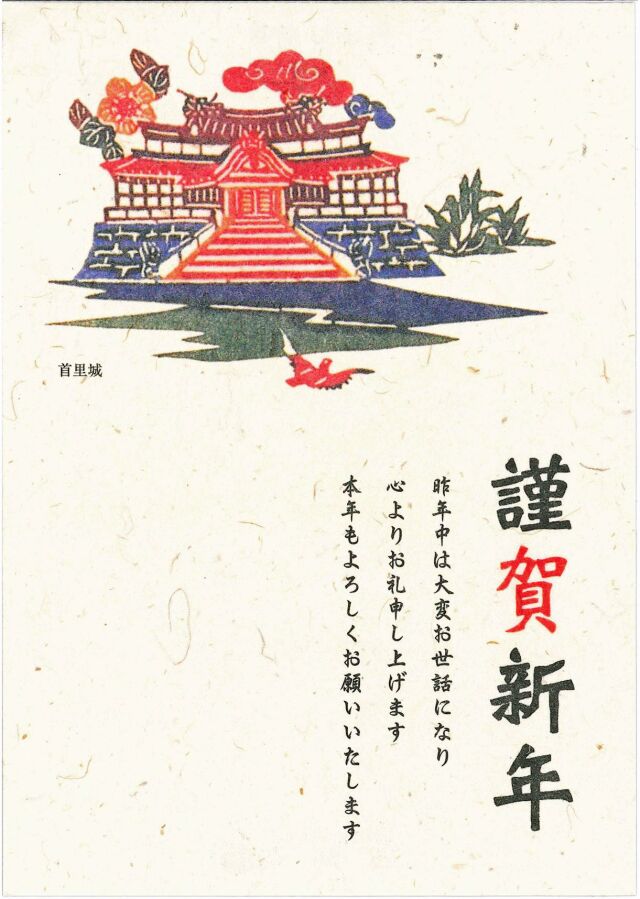 首里城
謹賀新年
昨年中は大変お世話になり
心よりお礼申し上げます
本年もよろしくお願いいたします